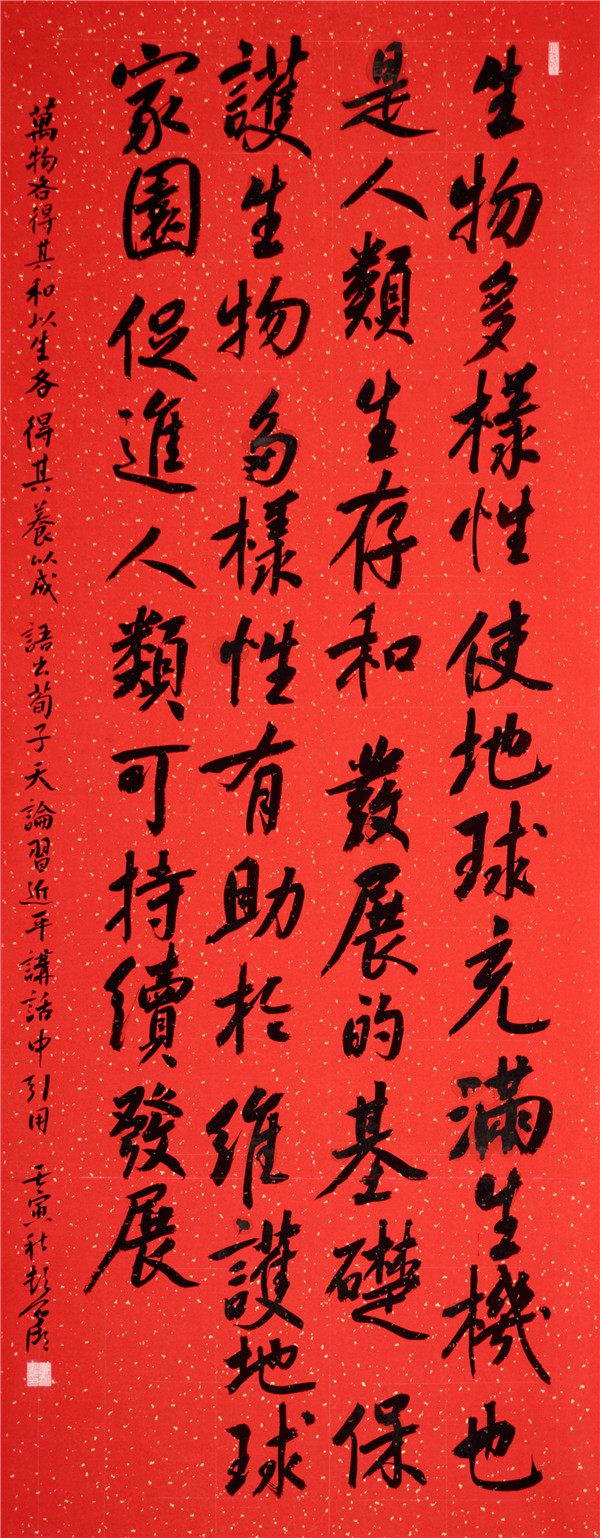 生物多樣性使地球充滿生機也
是人類生存和發展的基礎保
護生物多樣性有助於維護地球
家園促進人類可持續發展
萬物各得其和以生各得其養以成語出荀子天論習近平講話中引用壬寅秋彭